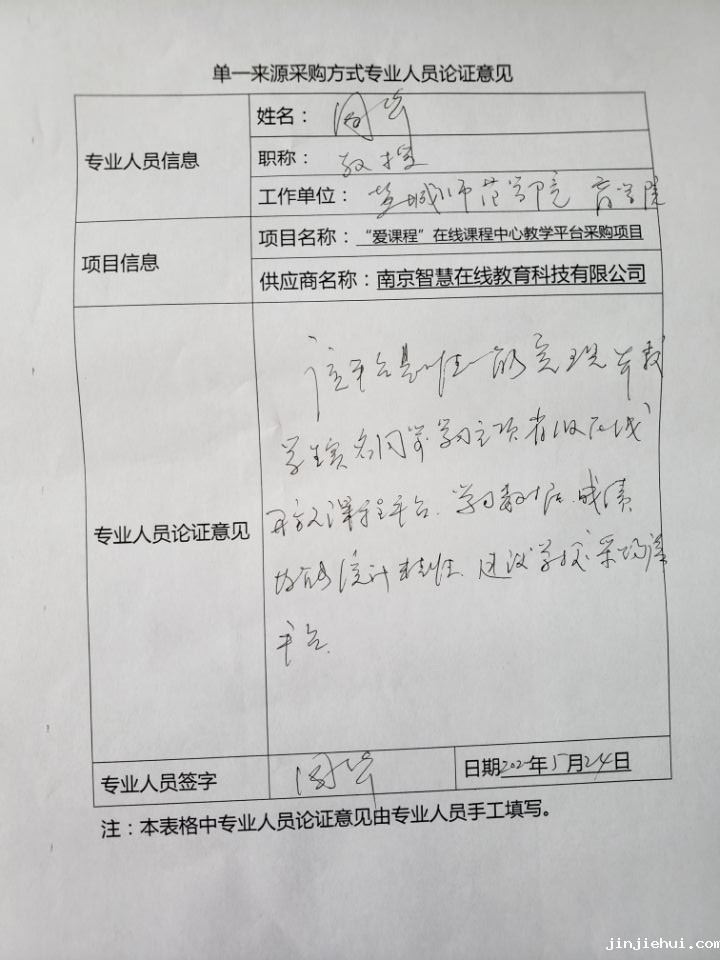 单一来源采购方式专业人员论证意见
专业人员信息
姓名：
职称：教授
工作单位：盐城师范学院 商学院
项目信息
项目名称：“爱课程”在线课程中心教学平台采购项目
供应商名称：南京智慧在线教育科技有限公司
专业人员论证意见
该平台是唯一能实现本校
学生实名同步学习立项省级在线
开放课程平台，学习数据、成绩
均能统计，建议学校采购该
平台。
专业人员签字
日期 年5月24日
注：本表格中专业人员论证意见由专业人员手工填写。
jinjiehui.com